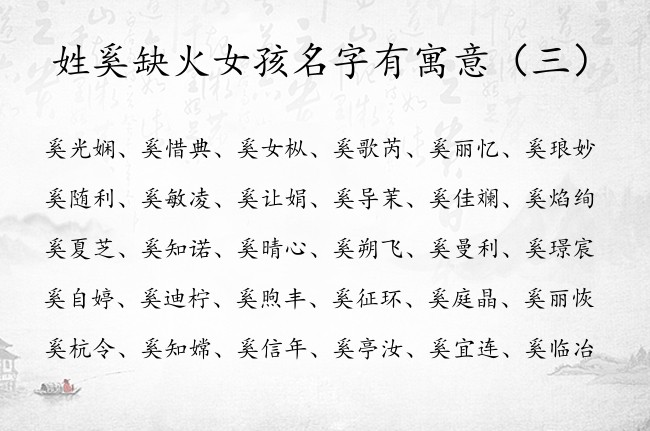 姓奚缺火女孩名字有寓意（三）
奚光娴、奚惜典、奚女枞、奚歌芮、奚丽忆、奚琅妙
奚随利、奚敏凌、奚让娟、奚导茉、奚佳斓、奚焰绚
奚夏芝、奚知诺、奚晴心、奚朔飞、奚曼利、奚璟宸
奚自婷、奚迪柠、奚煦丰、奚征环、奚庭晶、奚丽恢
奚杭令、奚知嫦、奚信年、奚亭汝、奚宜连、奚临冶